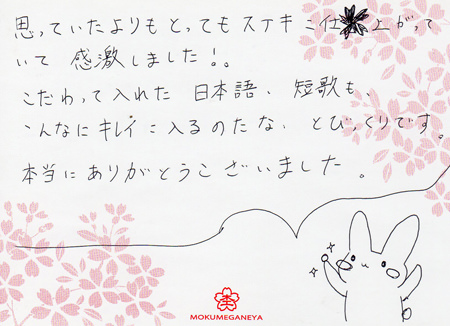 思っていたよりもとってもステキに仕上がって
いて 感激しました!!
こだわって入れた 日本語、短歌も、
こんなにキレイに入るのだな、とびっくりです。
本当にありがとうございました。
MOKUMEGANEYA